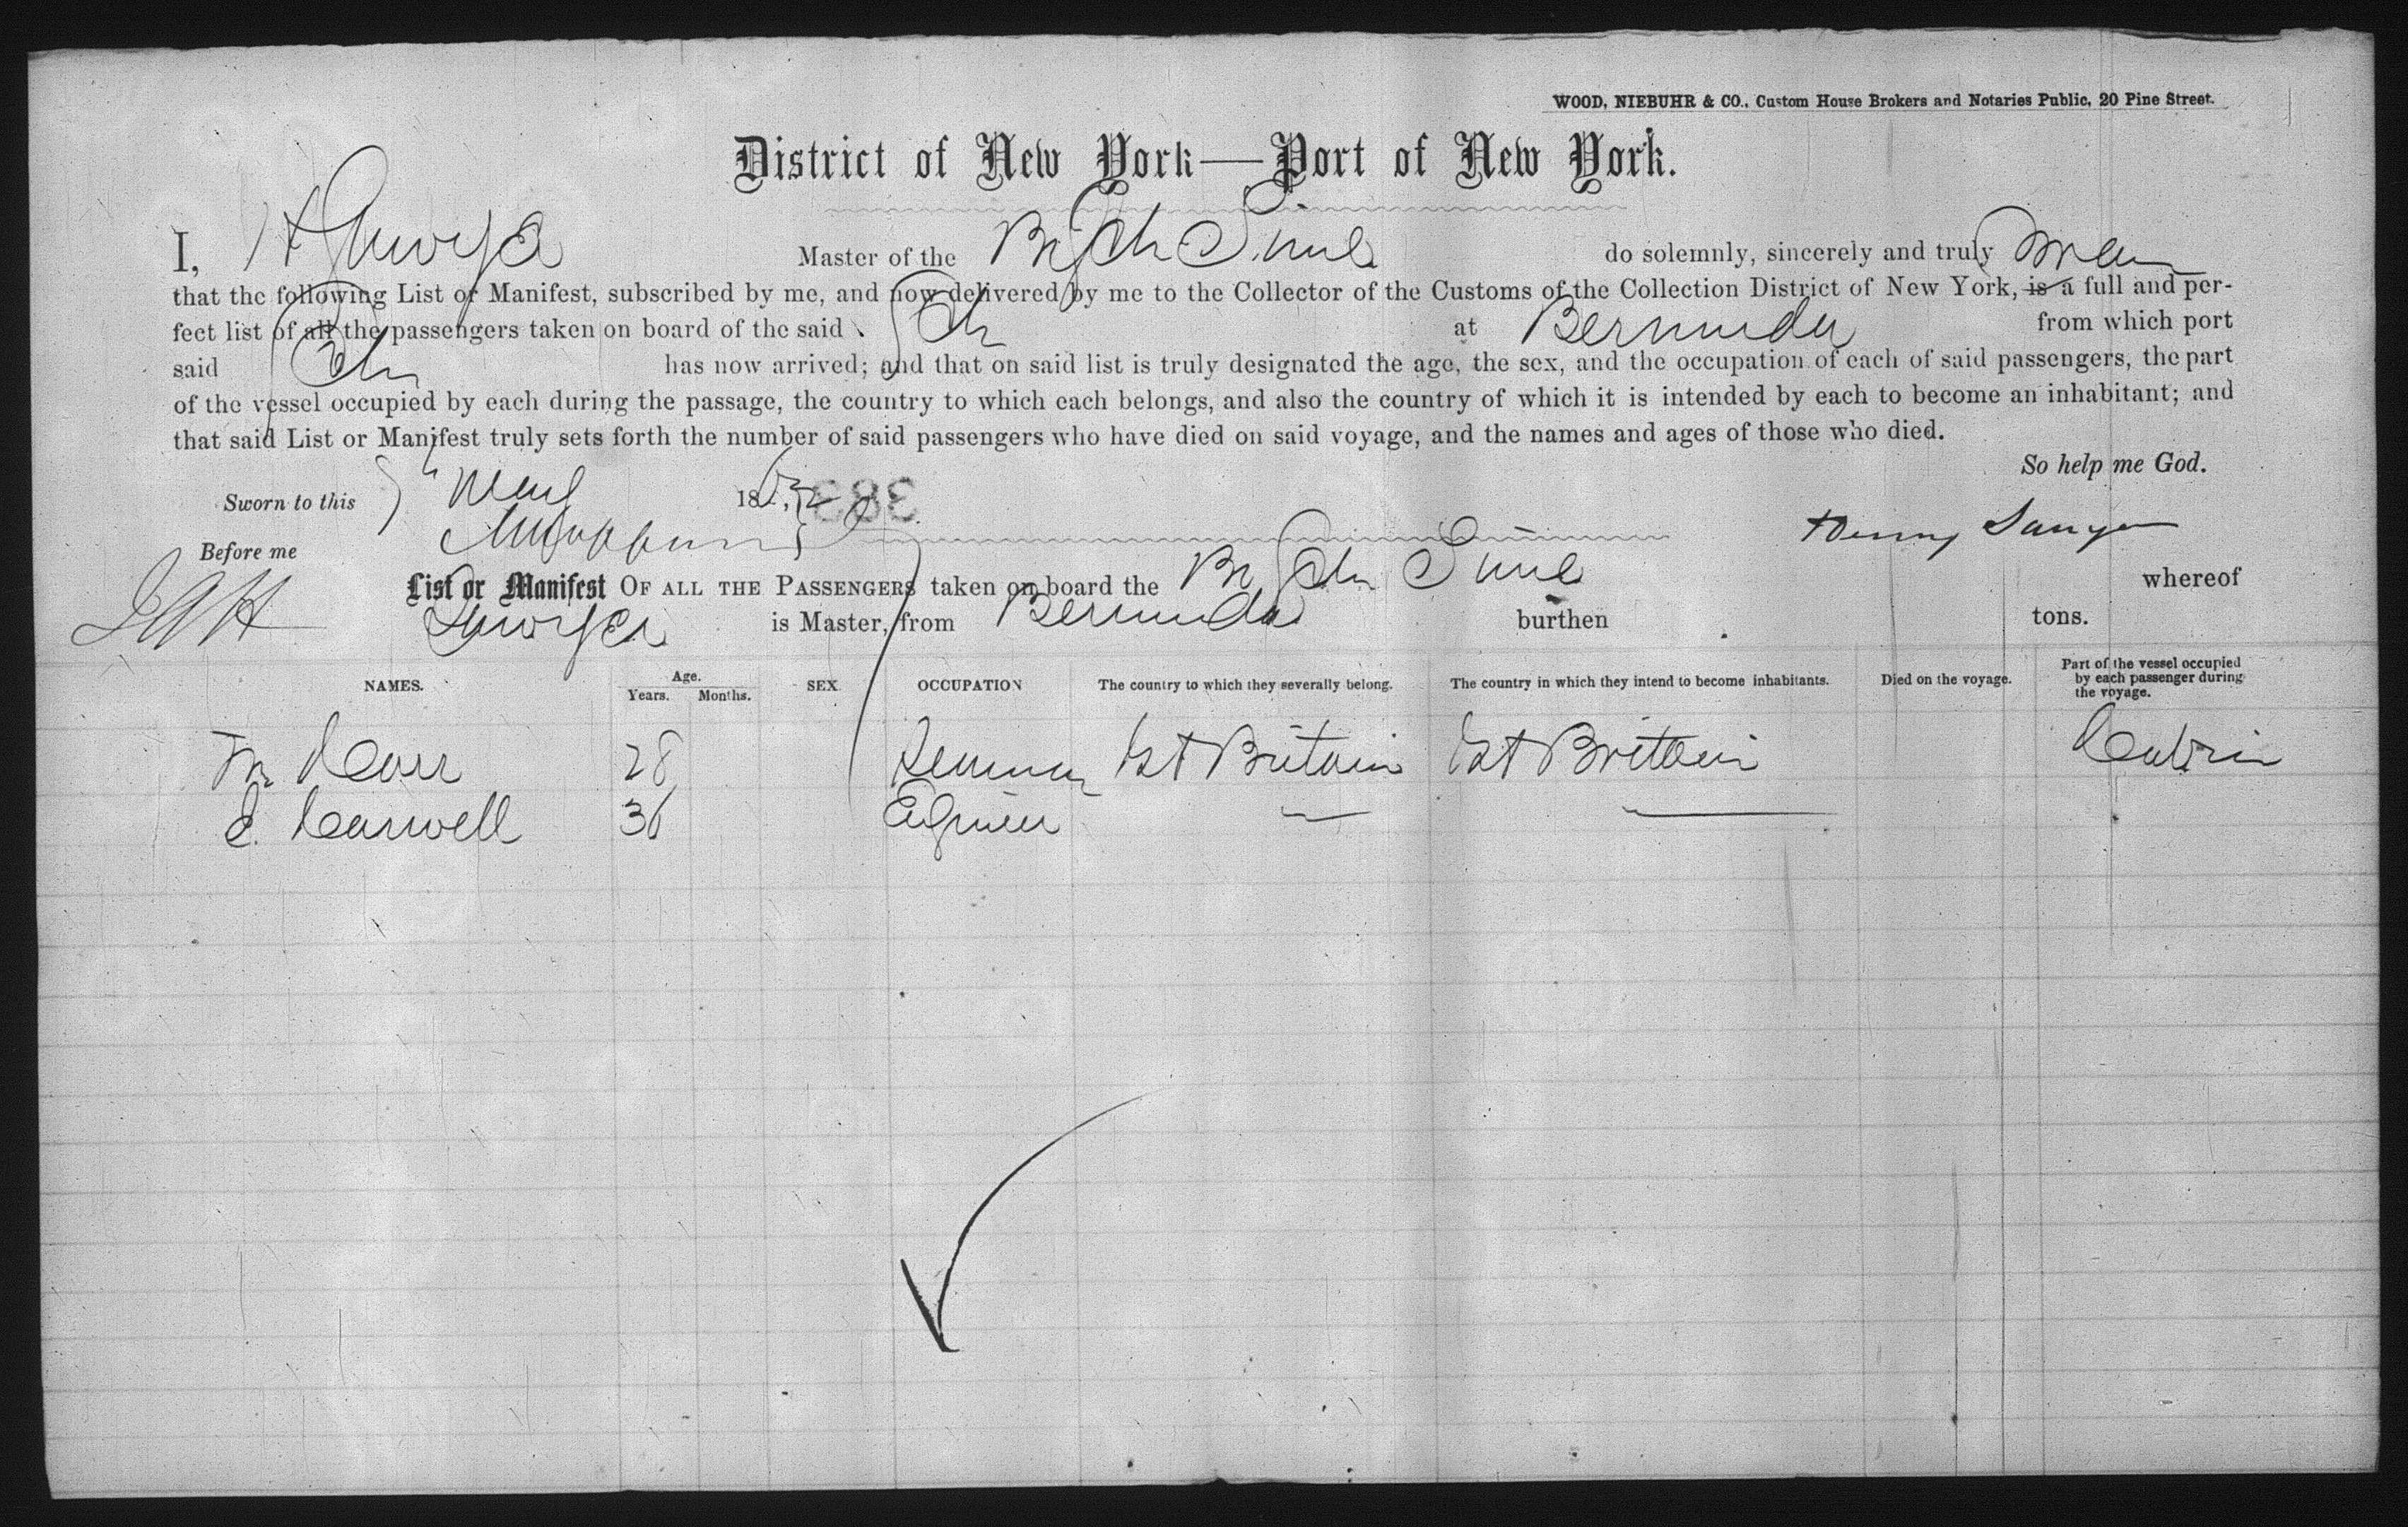 WOOD, NIEBUHR & CO., Custom House Brokers and Notaries Public, 20 Pine Street.
District of New York—Port of New York.
I, H Sawyer Master of the Br Sch do solemnly, sincerely and truly swear
that the following List or Manifest, subscribed by me, and now delivered by me to the Collector of the Customs of the Collection District of New York, is a full and per-
fect list of all the passengers taken on board of the said Sch at Bermuda from which port
said Sch has now arrived; and that on said list is truly designated the age, the sex, and the occupation of each of said passengers, the part
of the vessel occupied by each during the passage, the country to which each belongs, and also the country of which it is intended by each to become an inhabitant; and
that said List or Manifest truly sets forth the number of said passengers who have died on said voyage, and the names and ages of those who died.
So help me God.
Sworn to this 186 383
Before me Henry Sawyer
List or Manifest OF ALL THE PASSENGERS taken on board the Br Sch whereof
Sawyer is Master, from Bermuda burthen tons.
NAMES. Age. Years. Months. SEX. OCCUPATION The country to which they severally belong. The country in which they intend to become inhabitants. Died on the voyage. Part of the vessel occupied by each passenger during the voyage.
Carr 28 Seaman Gt Britain Gt Britain Cabin
Carwell 36